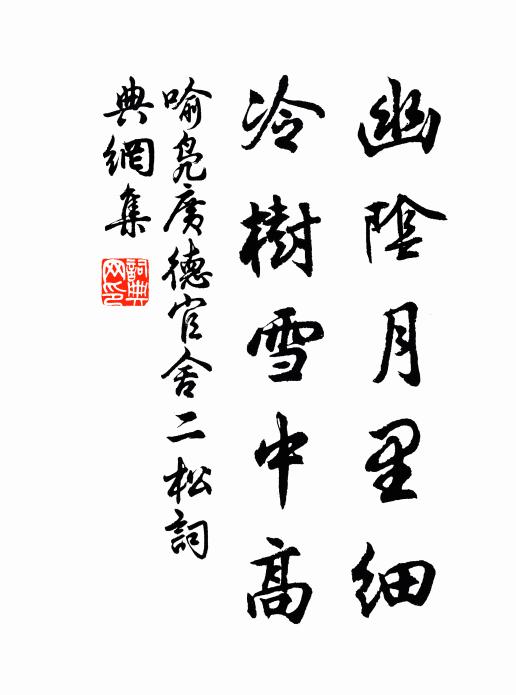 幽陰月里細
冷樹雪中高
喻鳧廣德官舍二松詞
典網集
詞典
网印